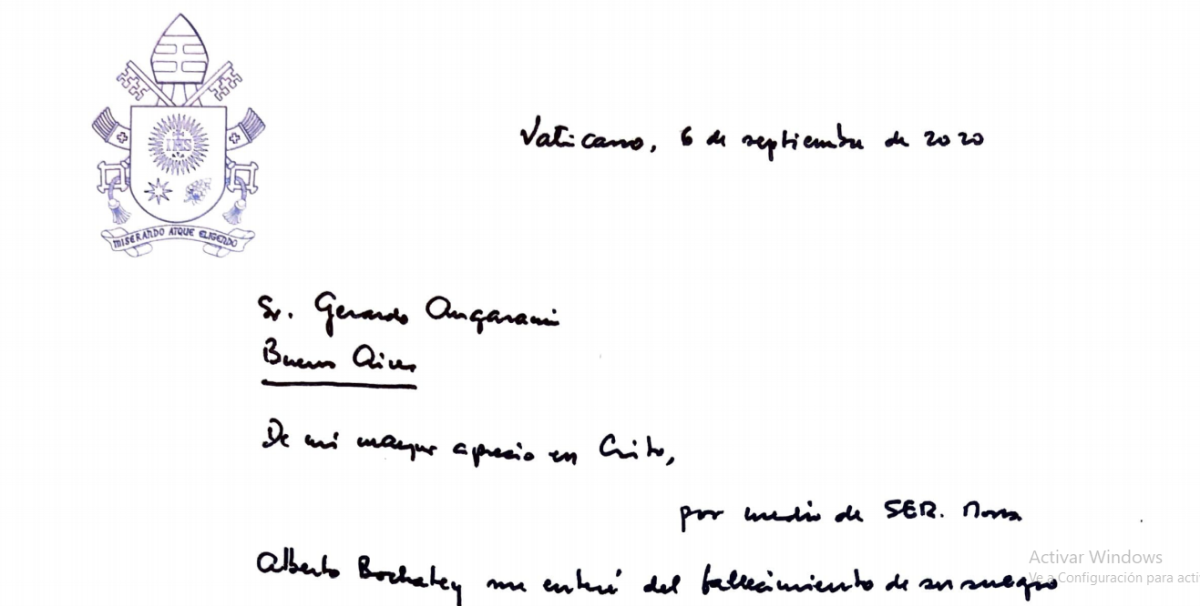 MISERANDO ATQUE ELIGENDO
IHS
Vaticano, 6 de septiembre de 2020
Sr. Gerardo Angarami
Buenos Aires
De mi mayor aprecio en Cristo,
por medio de SER. Mons
Alberto Bochatey me enteré del fallecimiento de su suegro
Activar Windows
Ve a Configuración para acti